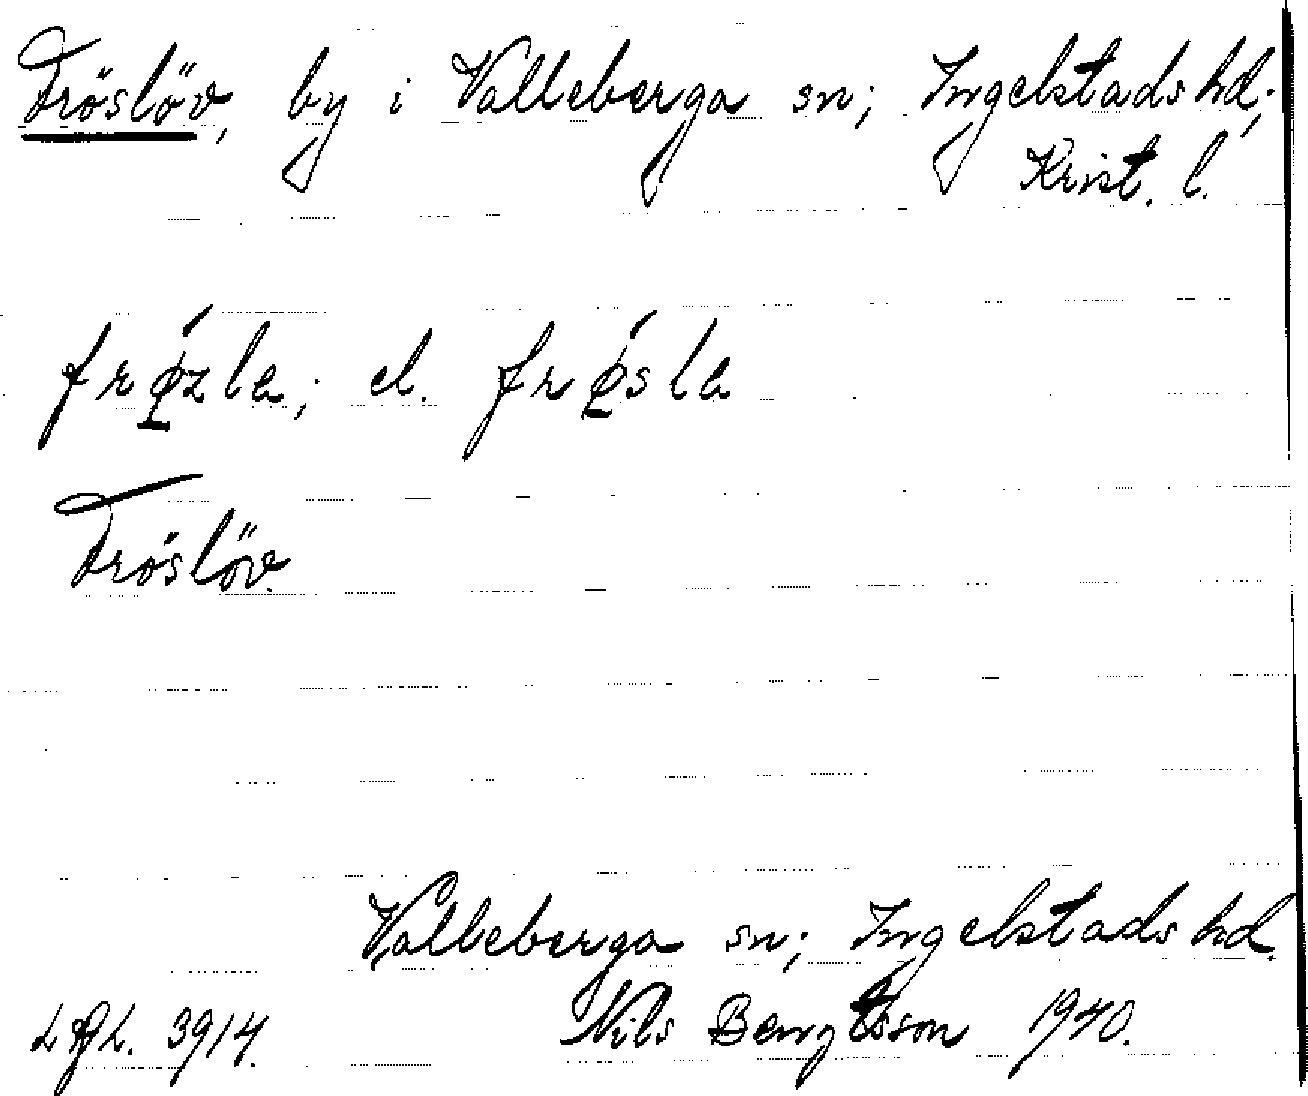 Fröslöv, by i Valleberga sn; Ingelstads hd;
Krist. l.
frǿ̠zla; el. frǿ̠sla
Fröslöv
Valleberga sn; Ingelstads hd.
Nils Bengtsson 1940.
3914.